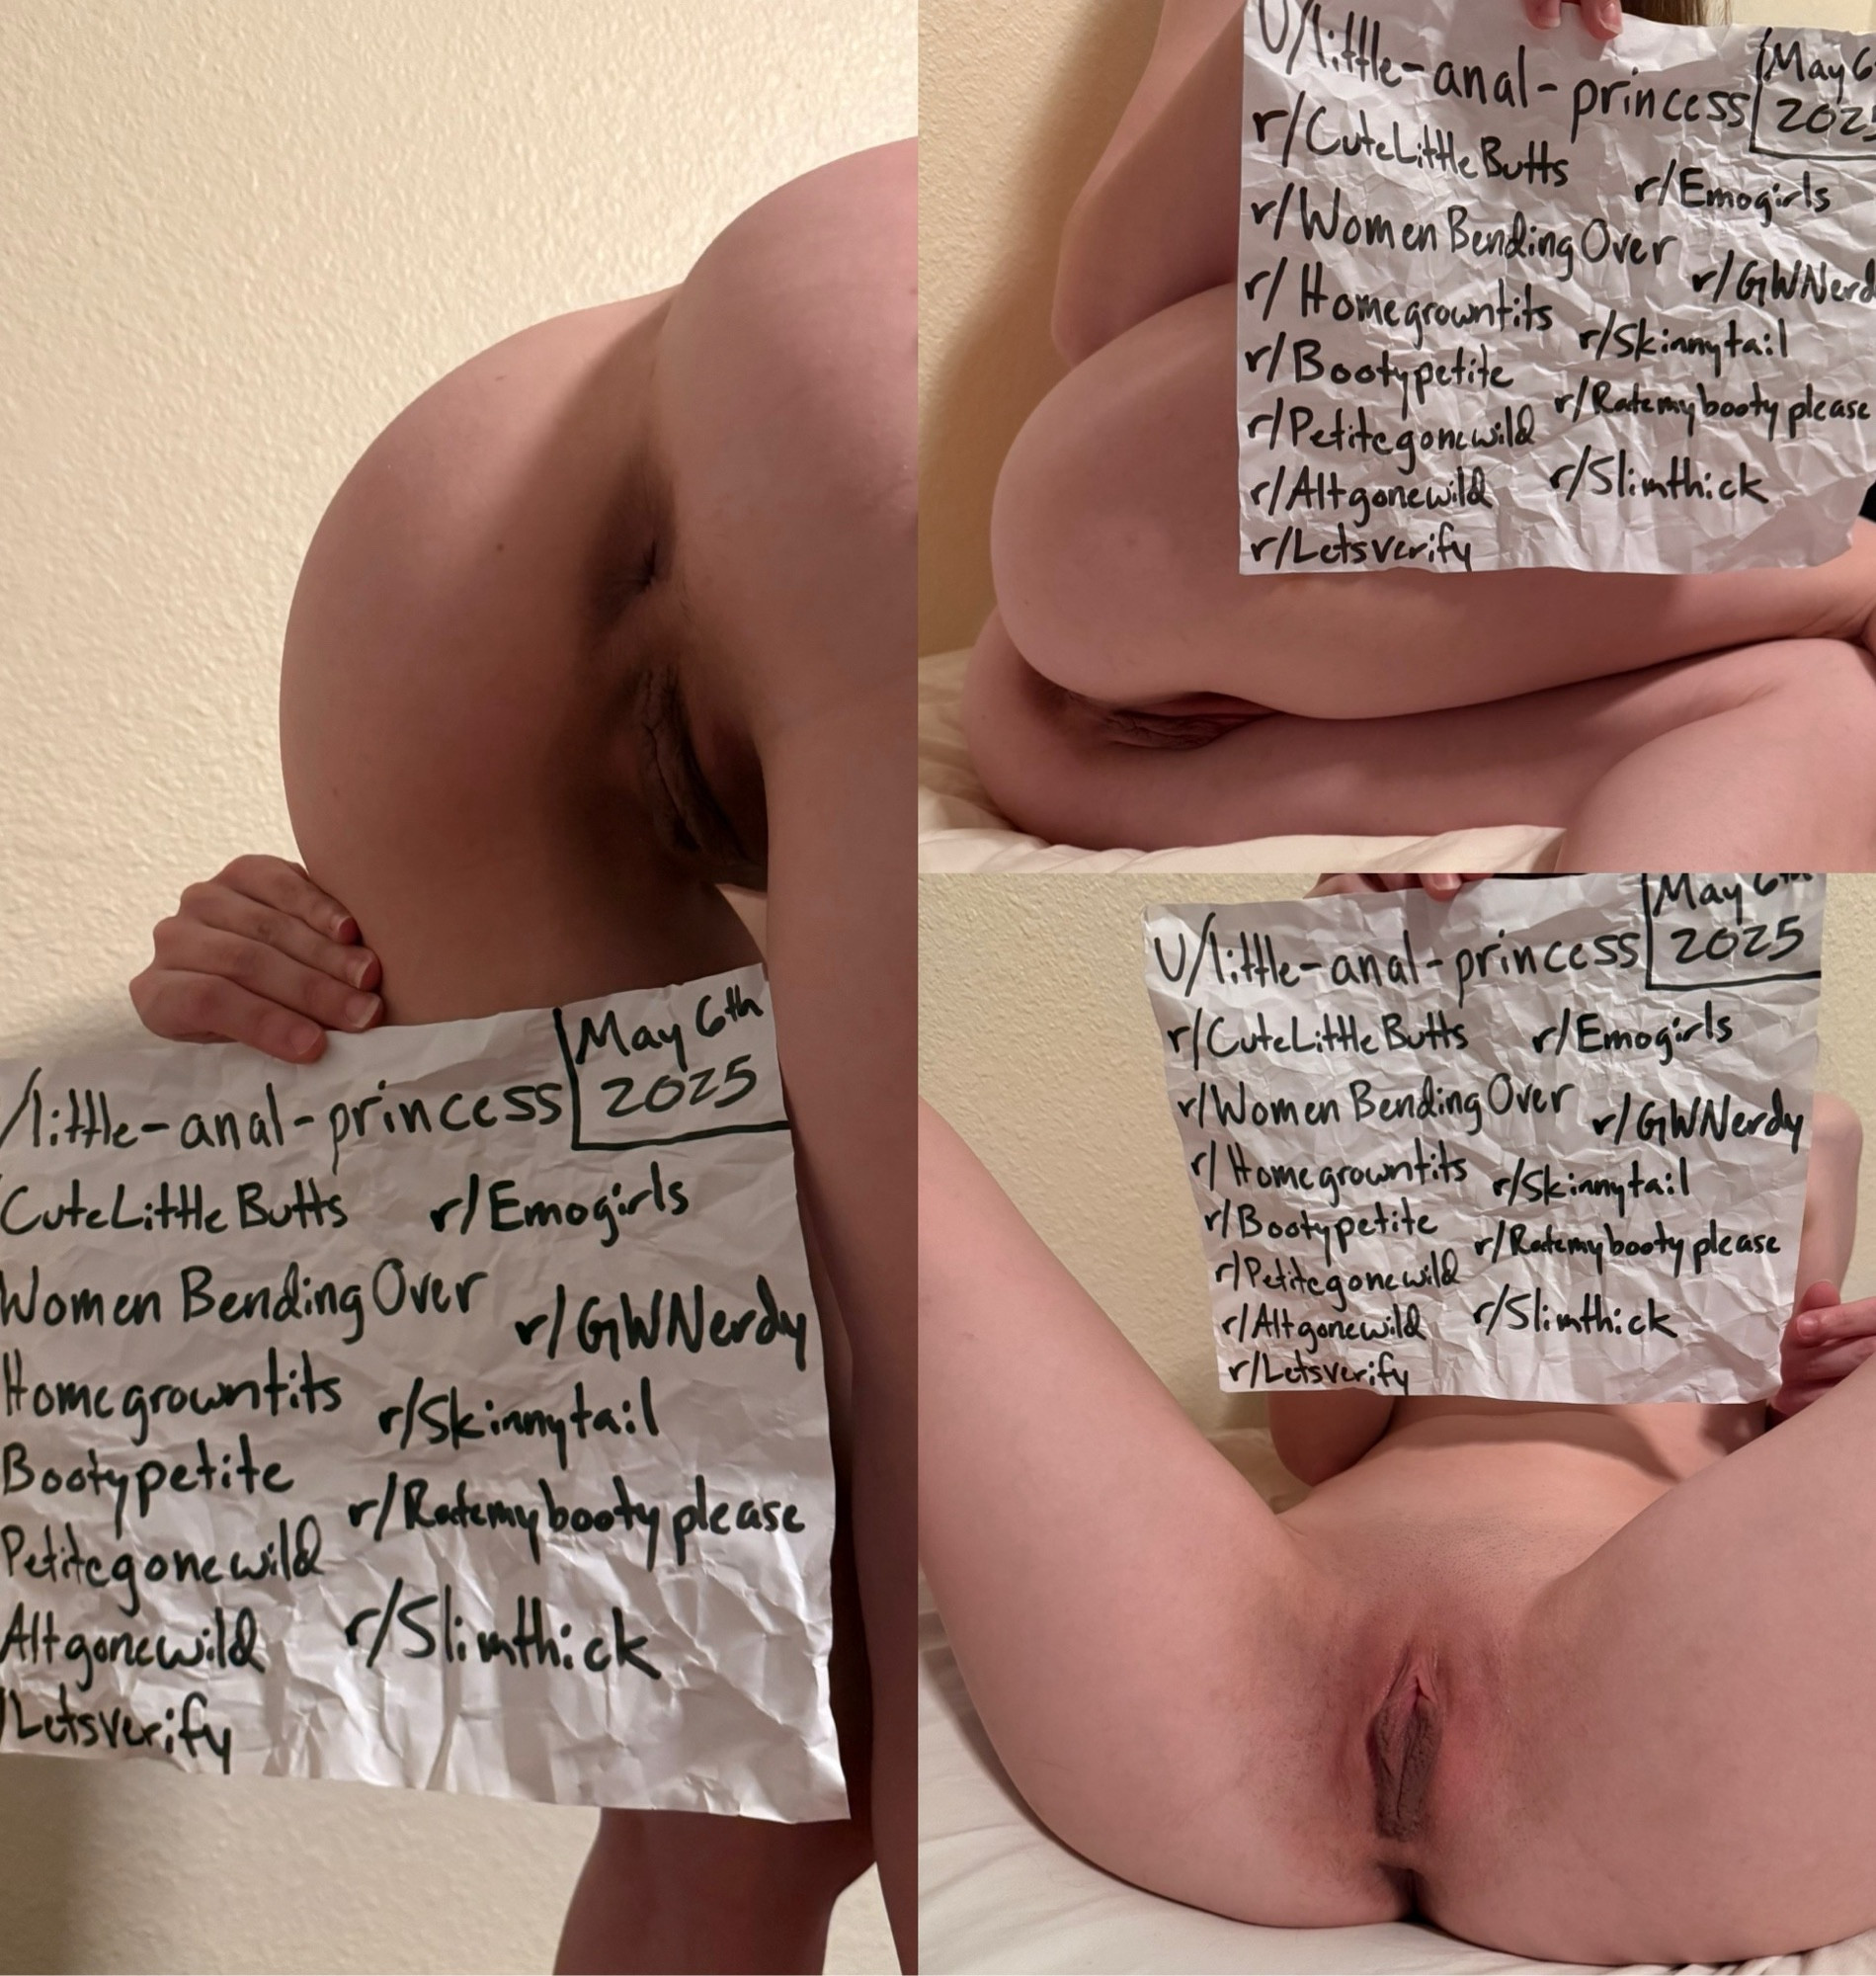 /little-anal-princess
May 6th
2025
CuteLittleButts
r/Emogirls
Women Bending Over
r/GWNerdy
Homegrowntits
r/Skinnytail
Bootypetite
r/Ratemybootyplease
Petitegonewild
Altgonewild
r/Slimthick
/Letsverify
U/little-anal-princess
May 6
2025
r/CuteLittleButts
r/Emogirls
r/Women Bending Over
r/GWNerd
r/Homegrowntits
r/Skinnytail
r/Bootypetite
r/Ratemybootyplease
r/Petitegonewild
r/Altgonewild
r/Slimthick
r/Letsverify
U/little-anal-princess
May 6th
2025
r/CuteLittleButts
r/Emogirls
r/Women Bending Over
r/GWNerdy
r/Homegrowntits
r/Skinnytail
r/Bootypetite
r/Ratemybootyplease
r/Petitegonewild
r/Altgonewild
r/Slimthick
r/Letsverify